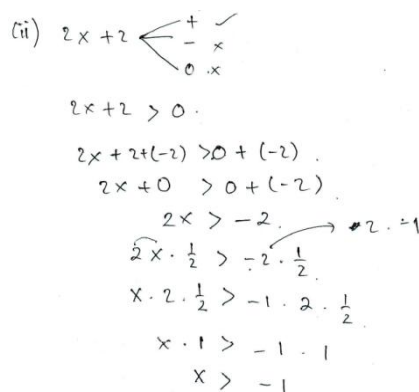 (ii) 2x + 2
+ ✓
- x
0 .x
2x + 2 > 0 .
2x + 2 + (-2) > 0 + (-2) .
2x + 0 > 0 + (-2)
2x > -2 .
2 . -1
2x . 1/2 > -2 . 1/2
x . 2 . 1/2 > -1 . 2 . 1/2
x . 1 > -1 . 1
x > -1